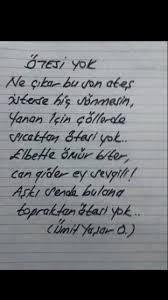 ÖTESİ YOK
Ne çıkar bu son ateş
isterse hiç sönmesin,
Yanan için çöllerde
sıcaktan ötesi yok..
Elbette ömür biter,
can gider ey sevgili!
Aşkı sende bulana
topraktan ötesi yok..
(Ümit Yaşar O.)